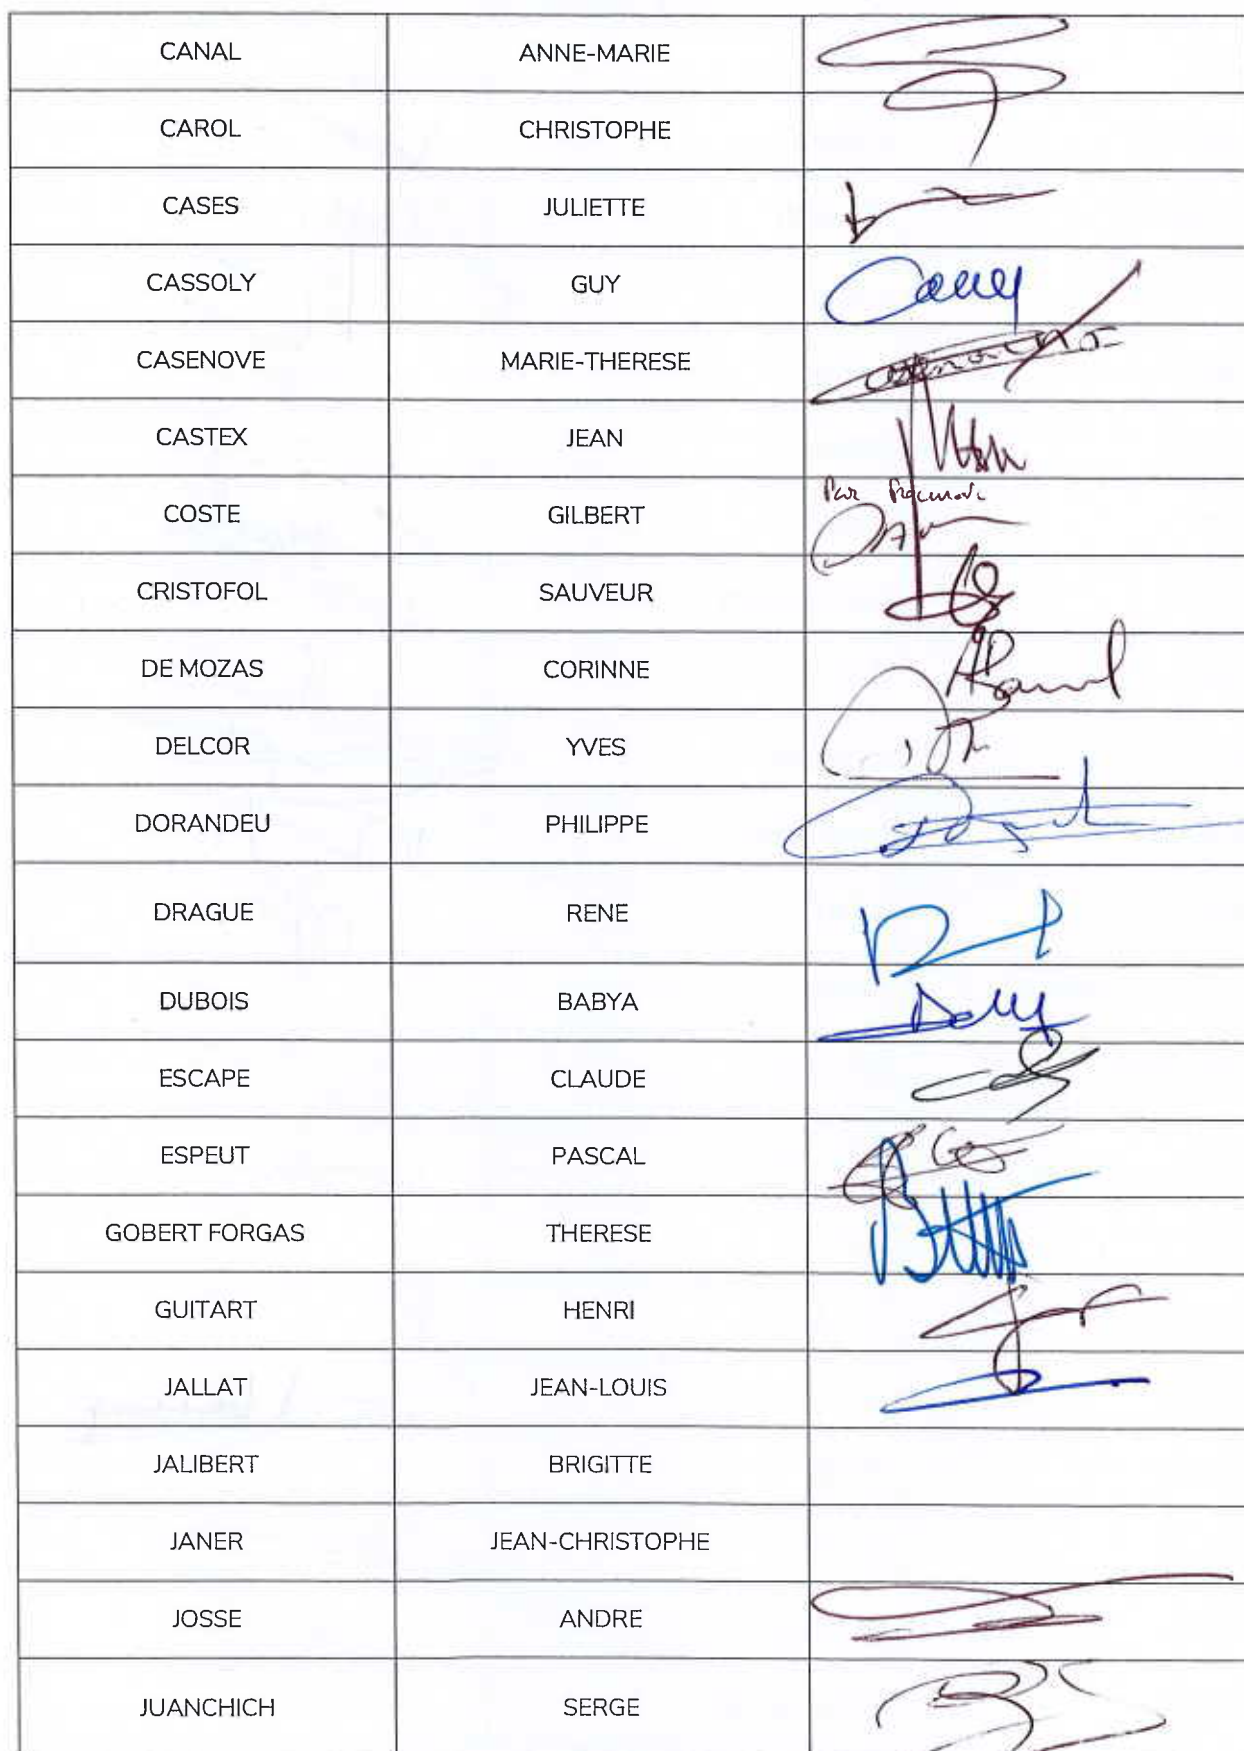 CANAL ANNE-MARIE
CAROL CHRISTOPHE
CASES JULIETTE
CASSOLY GUY
CASENOVE MARIE-THERESE
CASTEX JEAN
Par
COSTE GILBERT
CRISTOFOL SAUVEUR
DE MOZAS CORINNE
DELCOR YVES
DORANDEU PHILIPPE
DRAGUE RENE
DUBOIS BABYA
ESCAPE CLAUDE
ESPEUT PASCAL
GOBERT FORGAS THERESE
GUITART HENRI
JALLAT JEAN-LOUIS
JALIBERT BRIGITTE
JANER JEAN-CHRISTOPHE
JOSSE ANDRE
JUANCHICH SERGE